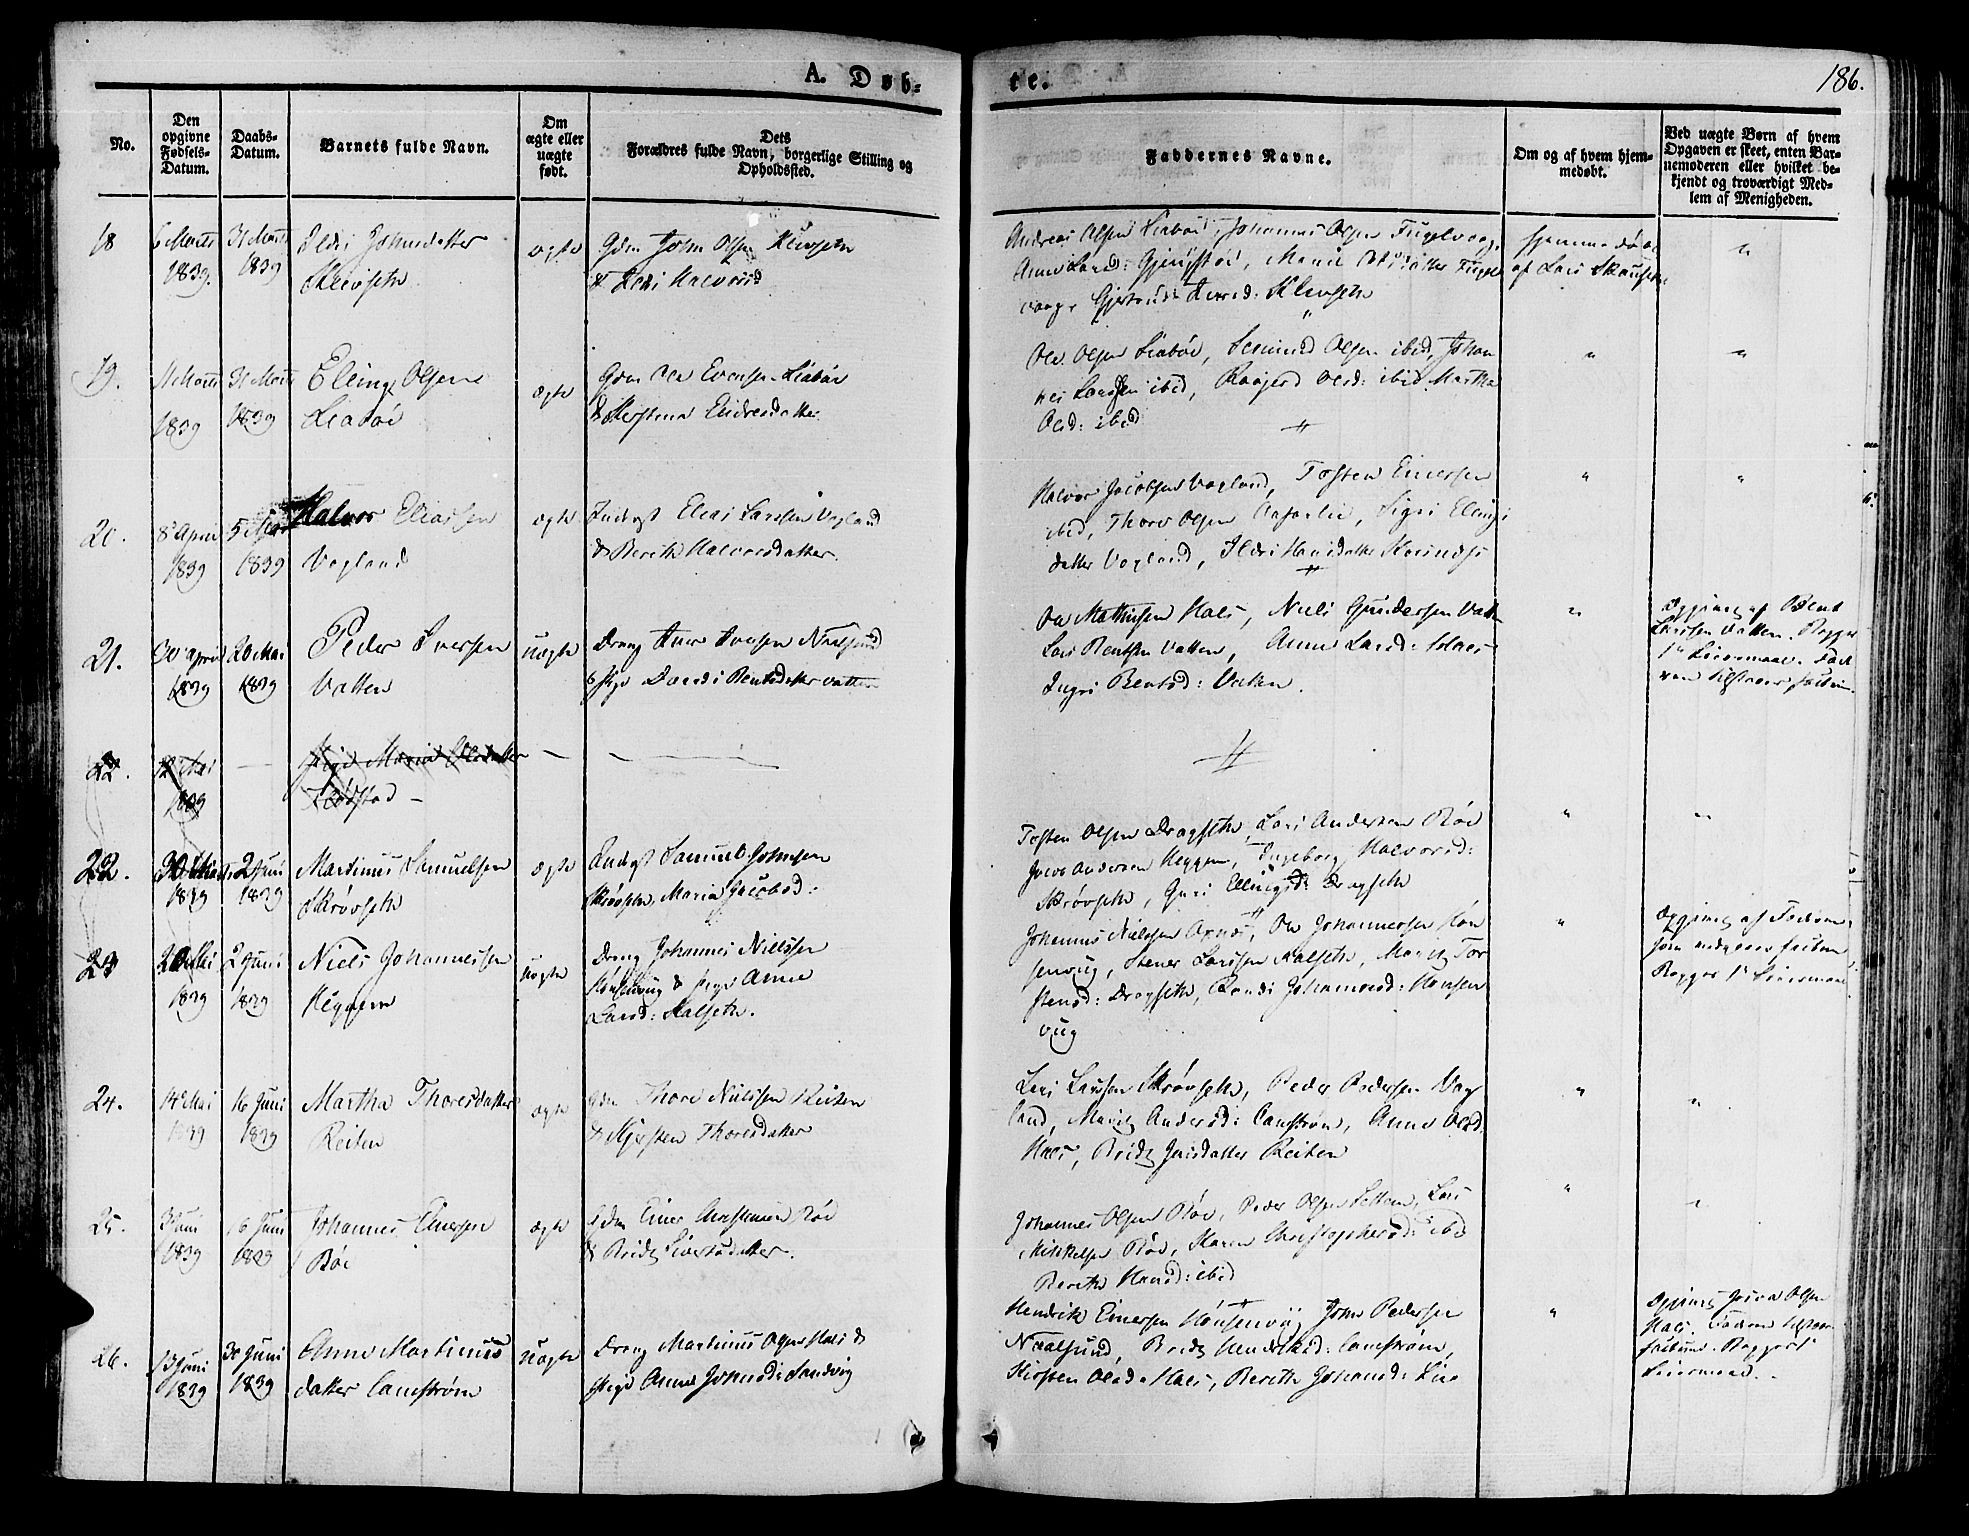 A. Døb-
te.
186.
No.
Den
opgivne
Fødsels-
Datum.
Daabs-
Datum.
Barnets fulde Navn.
Om
ægte eller
uægte
født.
Dets
Forældres fulde Navn, borgerlige Stilling og
Opholdssted.
Faddernes Navne.
Om og af hvem hjem-
medøbt.
Ved uægte Børn af hvem
Opgaven er skeet, enten Bar-
nemoderen eller hvilket be-
kjendt og troværdigt Med-
lem af Menigheden.
18
6 Marts
1839.
31 Marts
1839
Ildri Johnsdatter
Kleivseth
ægte
Gdm John Olsen Kleivseth
& Ildri Halvorsd
Andreas Olsen Liabøe, Johannes Olsen Fugelvaag,
Anne Larsd: , Marit Olsdatter Fugel
vaag, Gjertrud Iversd: Kleivseth
hjemmedøbt
af Lars
19.
11 Marts
1839
31 Marts
1839
Elling Olsen
Liabøe
ægte
Gdm Ole Evensen Liabøe
& Kerstina Endresdatter
Ole Olsen Liabøe, Olsen ibid, Johan
nes Larssen ibid, Olsd: ibid Martha
Olsd: ibid
20.
8 April
1839
5
1839
Halvor Eliassen
Vogland
ægte
Indegst Elias Larssen Vogland
& Berith Halvorsdatter.
Halvor Jacobsen Vogland, Tosten Einersen
ibid, Thore Olsen , Sigri Ellings
datter Vogland, Ildri Hansdatter
21.
30 April
1839
20 Mai
1839
Peder Iversen
Vatten
uægte
Dreng Iver Iversen Naalsund
& Pige Dordi Bentsdatter Vatten
Ole Mathisen Hals, Niels Gundersen Vatten
Lars Bentsen Vatten, Anne Larsd: Hals
Ingri Bentsd: Vatten.
Opgivet af Bent
Larssen Vatten. Begges
1te Leiermaal. Fad
eren tilstaaer
22.
12 Mai
1839
Pige Maria Olsdatter
22.
1839
2 Juni
1839
Martinus Samuelsen
Skrøvseth
ægte
Indegst Samuel Johnsen
Skrøvseth, Maria Jacobsd:
Tosten Olsen Dragseth, Lars Andersen Bøe
Andersen Heggem, Ingeborg Halvorsd:
Skrøvseth, Guri Ellingsd: Dragseth
23
1839
2 Juni
1839
Niels Johannessen
Heggem
uægte
Dreng Johannes Nielssen
Honsenvug & Pige Anne
Larsd: Halseth.
Johannes Nielssen , Ole Johannessen Hon
senvug, Stener Larssen Halseth, Marit Tor
stensd: Dragseth, Randi Johannesd: Honsen
vug
Opgivet af Faderen,
som
Begges 1te Leiermaal.
24.
14 Mai
1839
16 Juni
1839
Martha Thoresdatter
Reiten
ægte
Gdm Thore Nielssen Reiten
& Kjersten Thoresdatter
Lars Larssen Skrøvseth, Peder Pedersen Vog
land, Marit Andersd: Canstrøm, Anne Olsd:
Hals, Bridt Jensdatter Reiten
25.
3 Juni
1839
16 Juni
1839
Johannes Einersen
Bøe
ægte
Gdm Einer Christensen Bøe
& Bridt Sivertsdatter.
Johannes Olsen Bøe, Peder Olsen , Lars
Mikkelsen Bøe, Karen Christophersd: ibid
Berethe Hansd: ibid
26.
13 Juni
1839
30 Juni
1839
Anne Martinus
datter Canstrøm
uægte
Dreng Martinus Olsen Hals &
Pige Anne Johnsd: Sandvig
Hendrik Einersen Honsenvug John Pedersen
Naalsund, Bridt Hendriksd: Canstrøm,
Kirsten Olsd: Hals, Berith Johansd: Lie
Opgivet Olsen
Hals. Faderen tilstaaer
Begges 1te
Leiermaal.